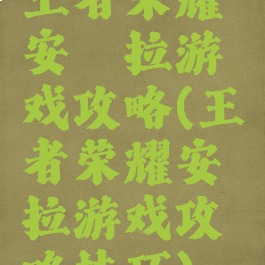 王者荣耀
安 拉游
戏攻略(王
者荣耀安
拉游戏攻
略技巧)